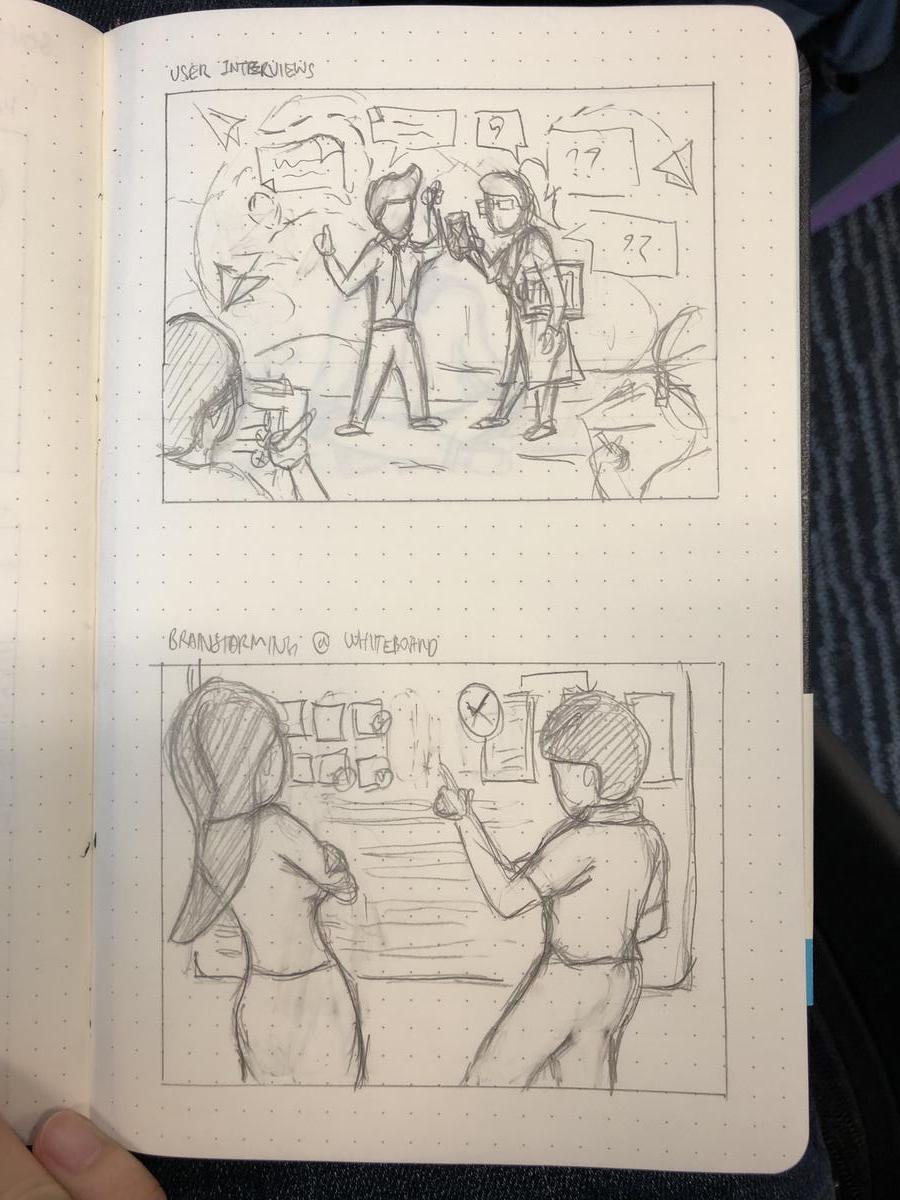 USER INTERVIEWS
?
??
??
BRAINSTORMING @ WHITEBOARD